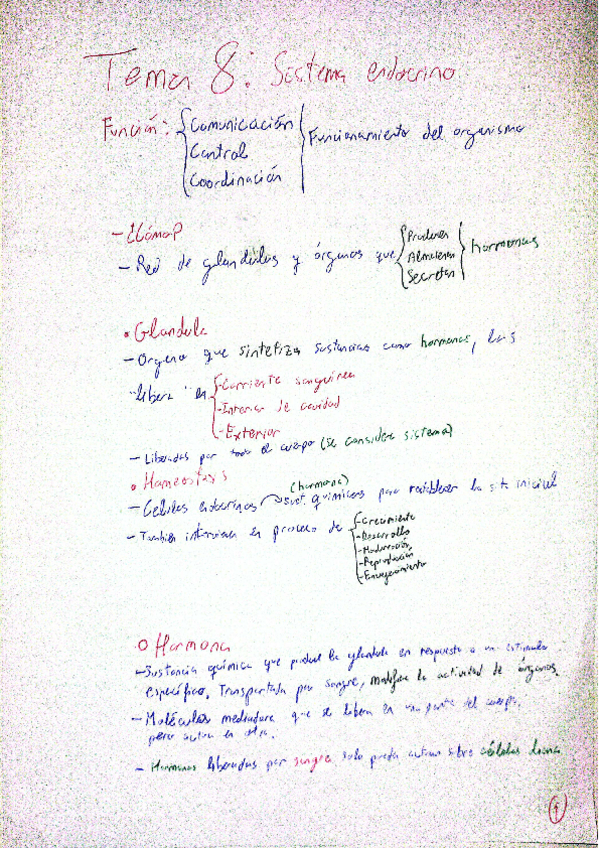 Tema 8: Sistema endocrino
Función: Comunicación
Control
Coordinación
Funcionamiento del organismo
- ¿Cómo?
- Red de glándulas y órganos que
Producen
Almacenan
Secretan
hormonas
• Glandula
- Organo que sintetiza sustancias como hormonas, las
"libera" en
- Corriente sanguínea
- Interior de cavidad
- Exterior
- Liberadas por todo el cuerpo (se considera sistema)
• Homeostasis
- Celulas endocrinas (hormona) sust. químicas para restablecer la sit. inicial
- También intervienen en proceso de
- Crecimiento
- Desarrollo
- Maduración
- Reproducción
- Envejecimiento
O Hormona
- Sustancia química que produce la glandula en respuesta a un estimulo
específico. Transportada por sangre, modifica la actividad de órganos.
- Moléculas mediadora que se libera en una parte del cuerpo,
pero actua en otra.
- Hormonas liberadas por sangre solo puede actuar sobre células diana
1